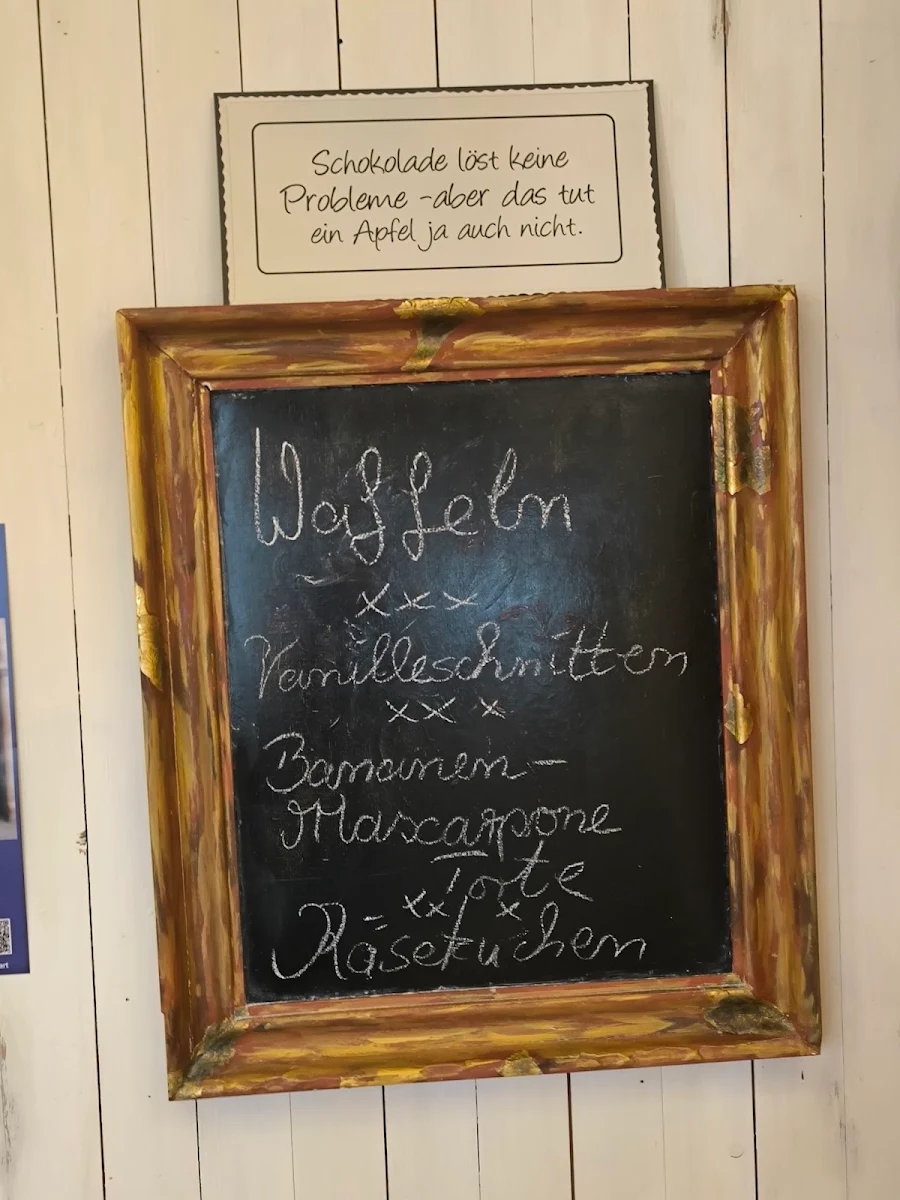 Schokolade löst keine
Probleme -aber das tut
ein Apfel ja auch nicht.
Waffeln
xxx
Vanilleschnitten
xx x
Bananen-
Mascarpone
Torte
xx x
Käsekuchen